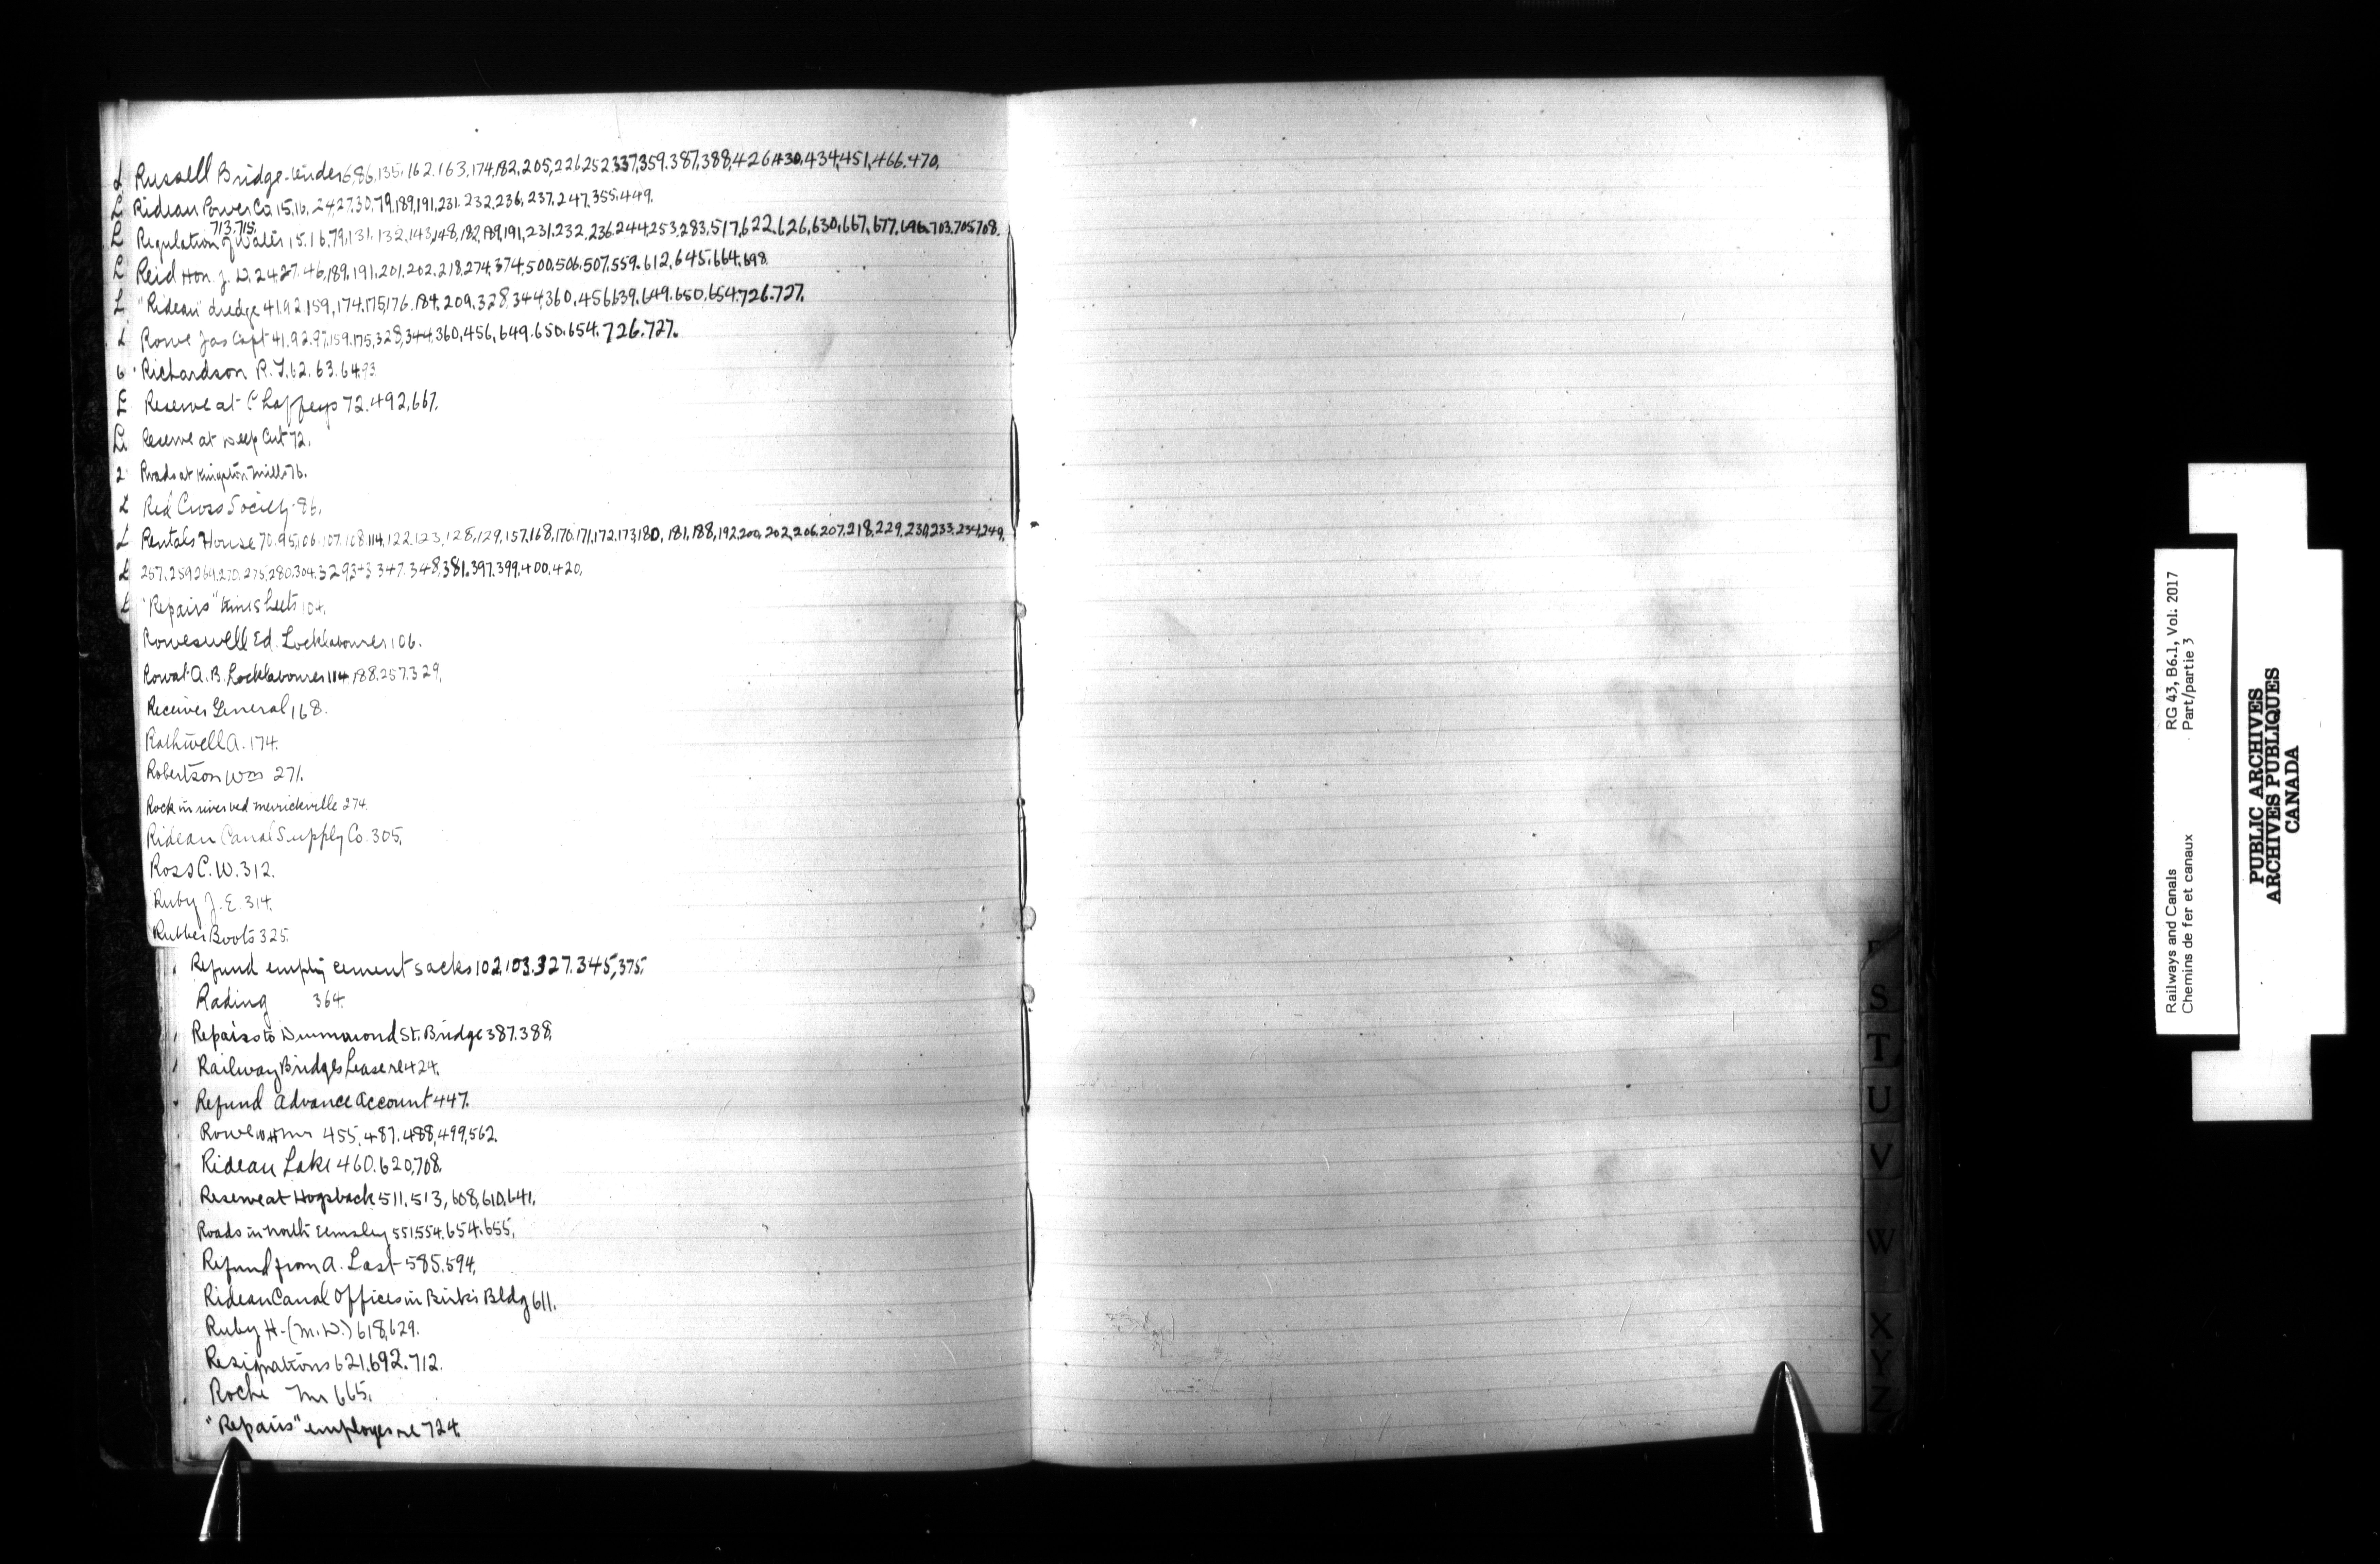 Russell Bridge tender 6,86,135,162.163,174,182,205,226,252,337,359.387,388,426,430,434,451,466.470.
Rideau Power Co 15,16,24,27,30,79,189,191,231.232,236,237.247.355.449.
713.715.
Regulation of Water 15.16,79,131,132,143,148,182,189,191,231.232.236.244.253.283.517,622.626,630,667,677,696.703.705.708.
Reid Hon. J. D. 24.27.46,189,191.201.202.218,274,374,500,506,507,559.612,645,664,698
"Rideau" dredge 41.92.159,174.175,176.184.209.328,344,360,456,639.649.650,654.726.727.
Rowe Jas Capt 41.92.97.159.175,328,344,360,456,649.650.654.726.727.
Richardson R. J. 62.63.64.93
Reserve at Chaffeys 72.492,667.
Reserve at Deep Cut 72.
Roads at Kingston Mills 76.
Red Cross Society 86.
Rentals House 70.95,106.107.108.114,122,123,128,129,157,168,170.171,172.173,180,181,188,192,200,202,206.207.218.229.230,233.234,249.
257.259.269.270.275,280.304.329.343.347.348,381.397.399.400.420,
"Repairs" time sheets 104.
Roweswell Ed. Locklabourer 106.
Rowat A. B. Locklabourer 114 188.257.329.
Receiver General 168.
Rothwell A. 174.
Robertson Wm 271.
Rock in river bed Merrickville 274.
Rideau Canal Supply Co. 305.
Ross C. W. 312.
Ruby J. E. 314.
Rubber Boots 325.
Refund empty cement sacks 102,103.327.345,375.
Rading 364.
Repairs to Drummond St. Bridge 387.388.
Railway Bridges Lease re 424.
Refund Advance Account 447.
Rowe W H Mr 455,487.488,499,562.
Rideau Lake 460.620,708.
Reserve at Hogsback 511.513,608,610,641.
Roads in North Elmsley 551,554.654.655.
Refund from A. Last 585.594.
Rideau Canal Offices in Birks Bldg 611.
Ruby H. (M.D.) 618,629.
Resignations 621.692.712.
Roche Mr 665.
"Repairs" employes re 724.
S
T
U
V
W
X
Y
Z
Railways and Canals RG 43, B6.1, Vol. 2017
Chemins de fer et canaux Part/partie 3
PUBLIC ARCHIVES
ARCHIVES PUBLIQUES
CANADA